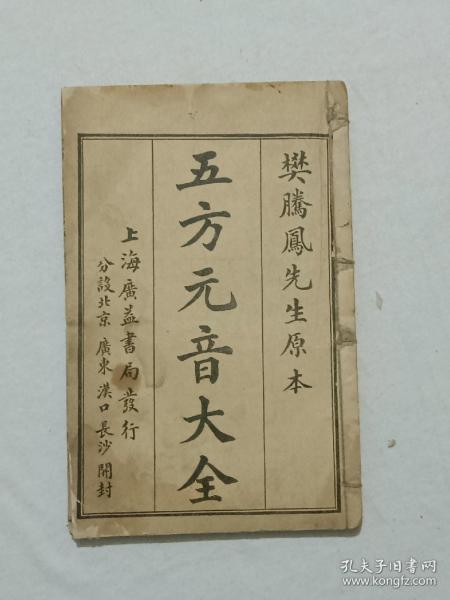 樊騰鳳先生原本
五方元音大全
上海廣益書局發行
分設北京 廣東 漢口 長沙 開封
孔夫子旧书网
www.kongfz.com